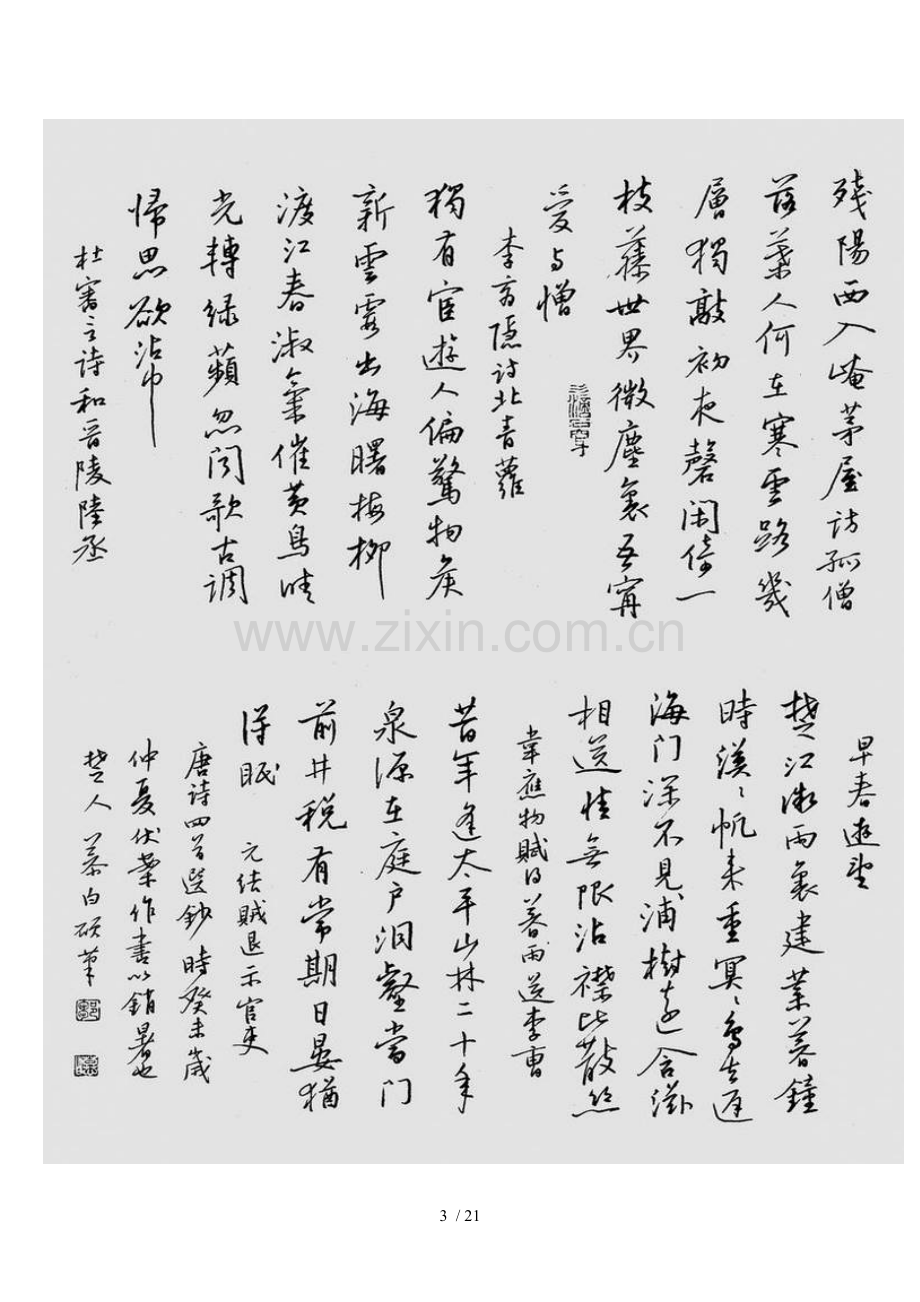 殘陽西入崦茅屋訪孤僧
落葉人何在寒雲路幾
層獨敲初夜磬閑倚一
枝藤世界微塵裏吾甯
愛与憎
李商隱詩北青蘿
獨有宦遊人偏驚物侯
新雲霞出海曙梅柳
渡江春淑氣催黄鳥晴
光轉绿蘋忽闻歌古調
歸思欲沾巾
杜審言詩和晉陵陸丞
早春遊望
楚江微雨裏建業暮鐘
時漠〻帆来重冥〻鳥去遲
海门深不見浦樹遠含滋
相送情無限沾襟比散丝
韋應物賦得暮雨送李曹
昔年逢太平山林二十年
泉源在庭户洞壑當门
前井税有常期日晏猶
得眠 元结賊退示官吏
唐诗四首選鈔時癸未歲
仲夏伏案作書以銷暑也
楚人慕白硕筆
www.zixin.com.cn
3 / 21